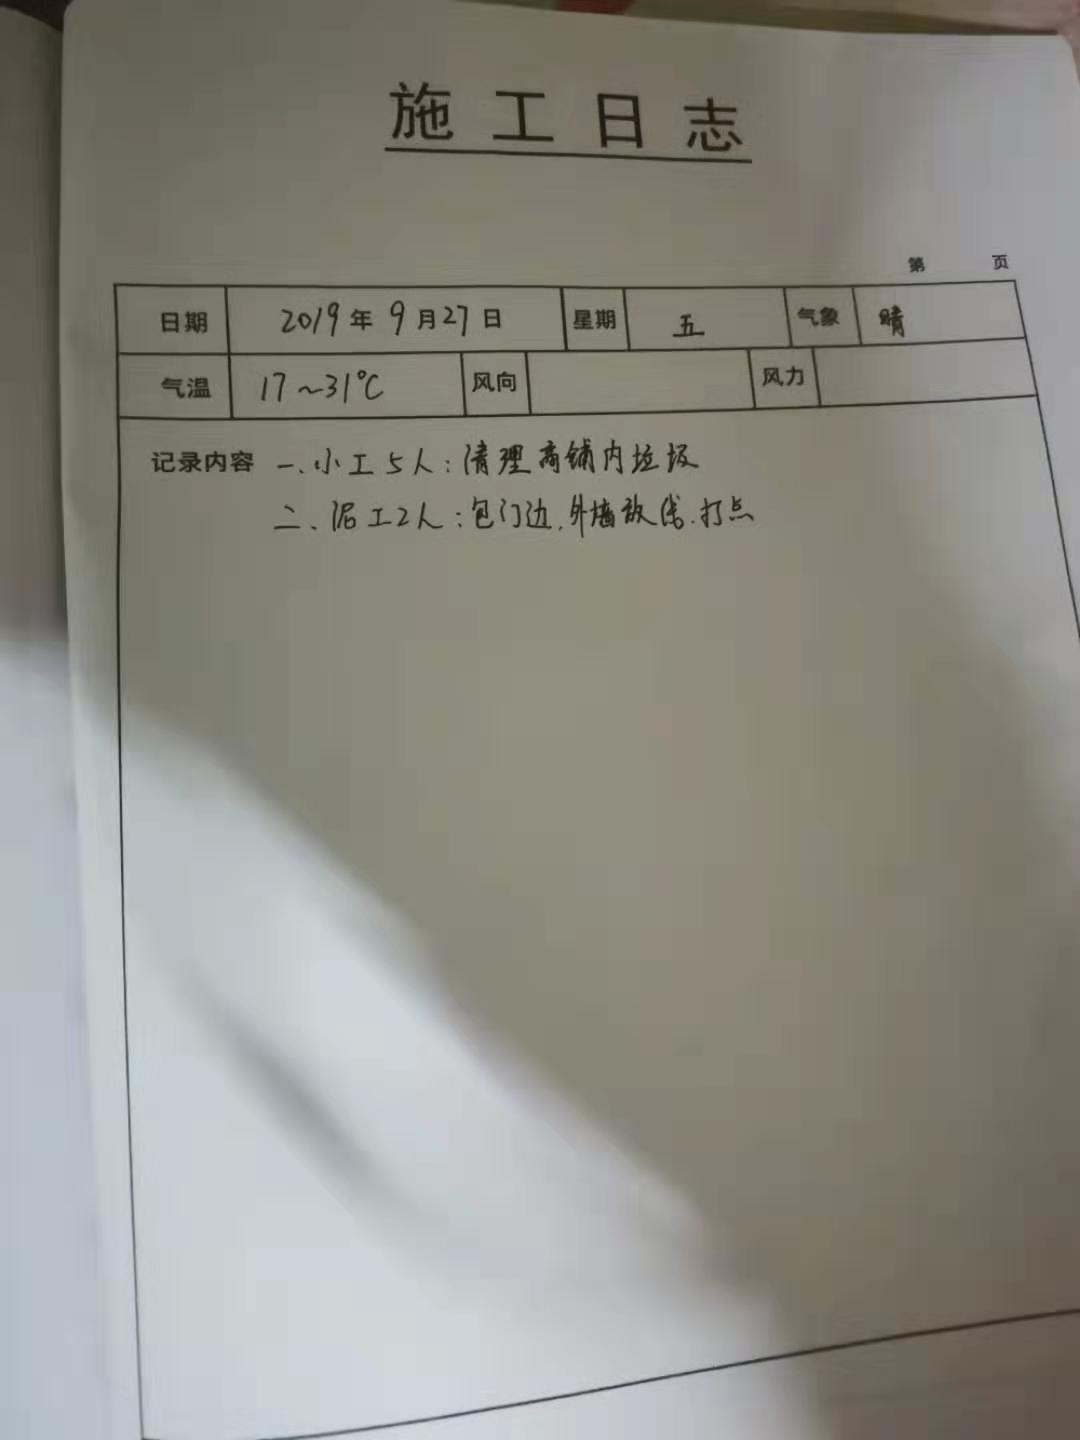 施工日志
第 页
日期 2019年9月27日 星期 五 气象 晴
气温 17～31℃ 风向 风力
记录内容 一、小工5人：清理商铺内垃圾
二、泥工2人：包门边、外墙放线、打点